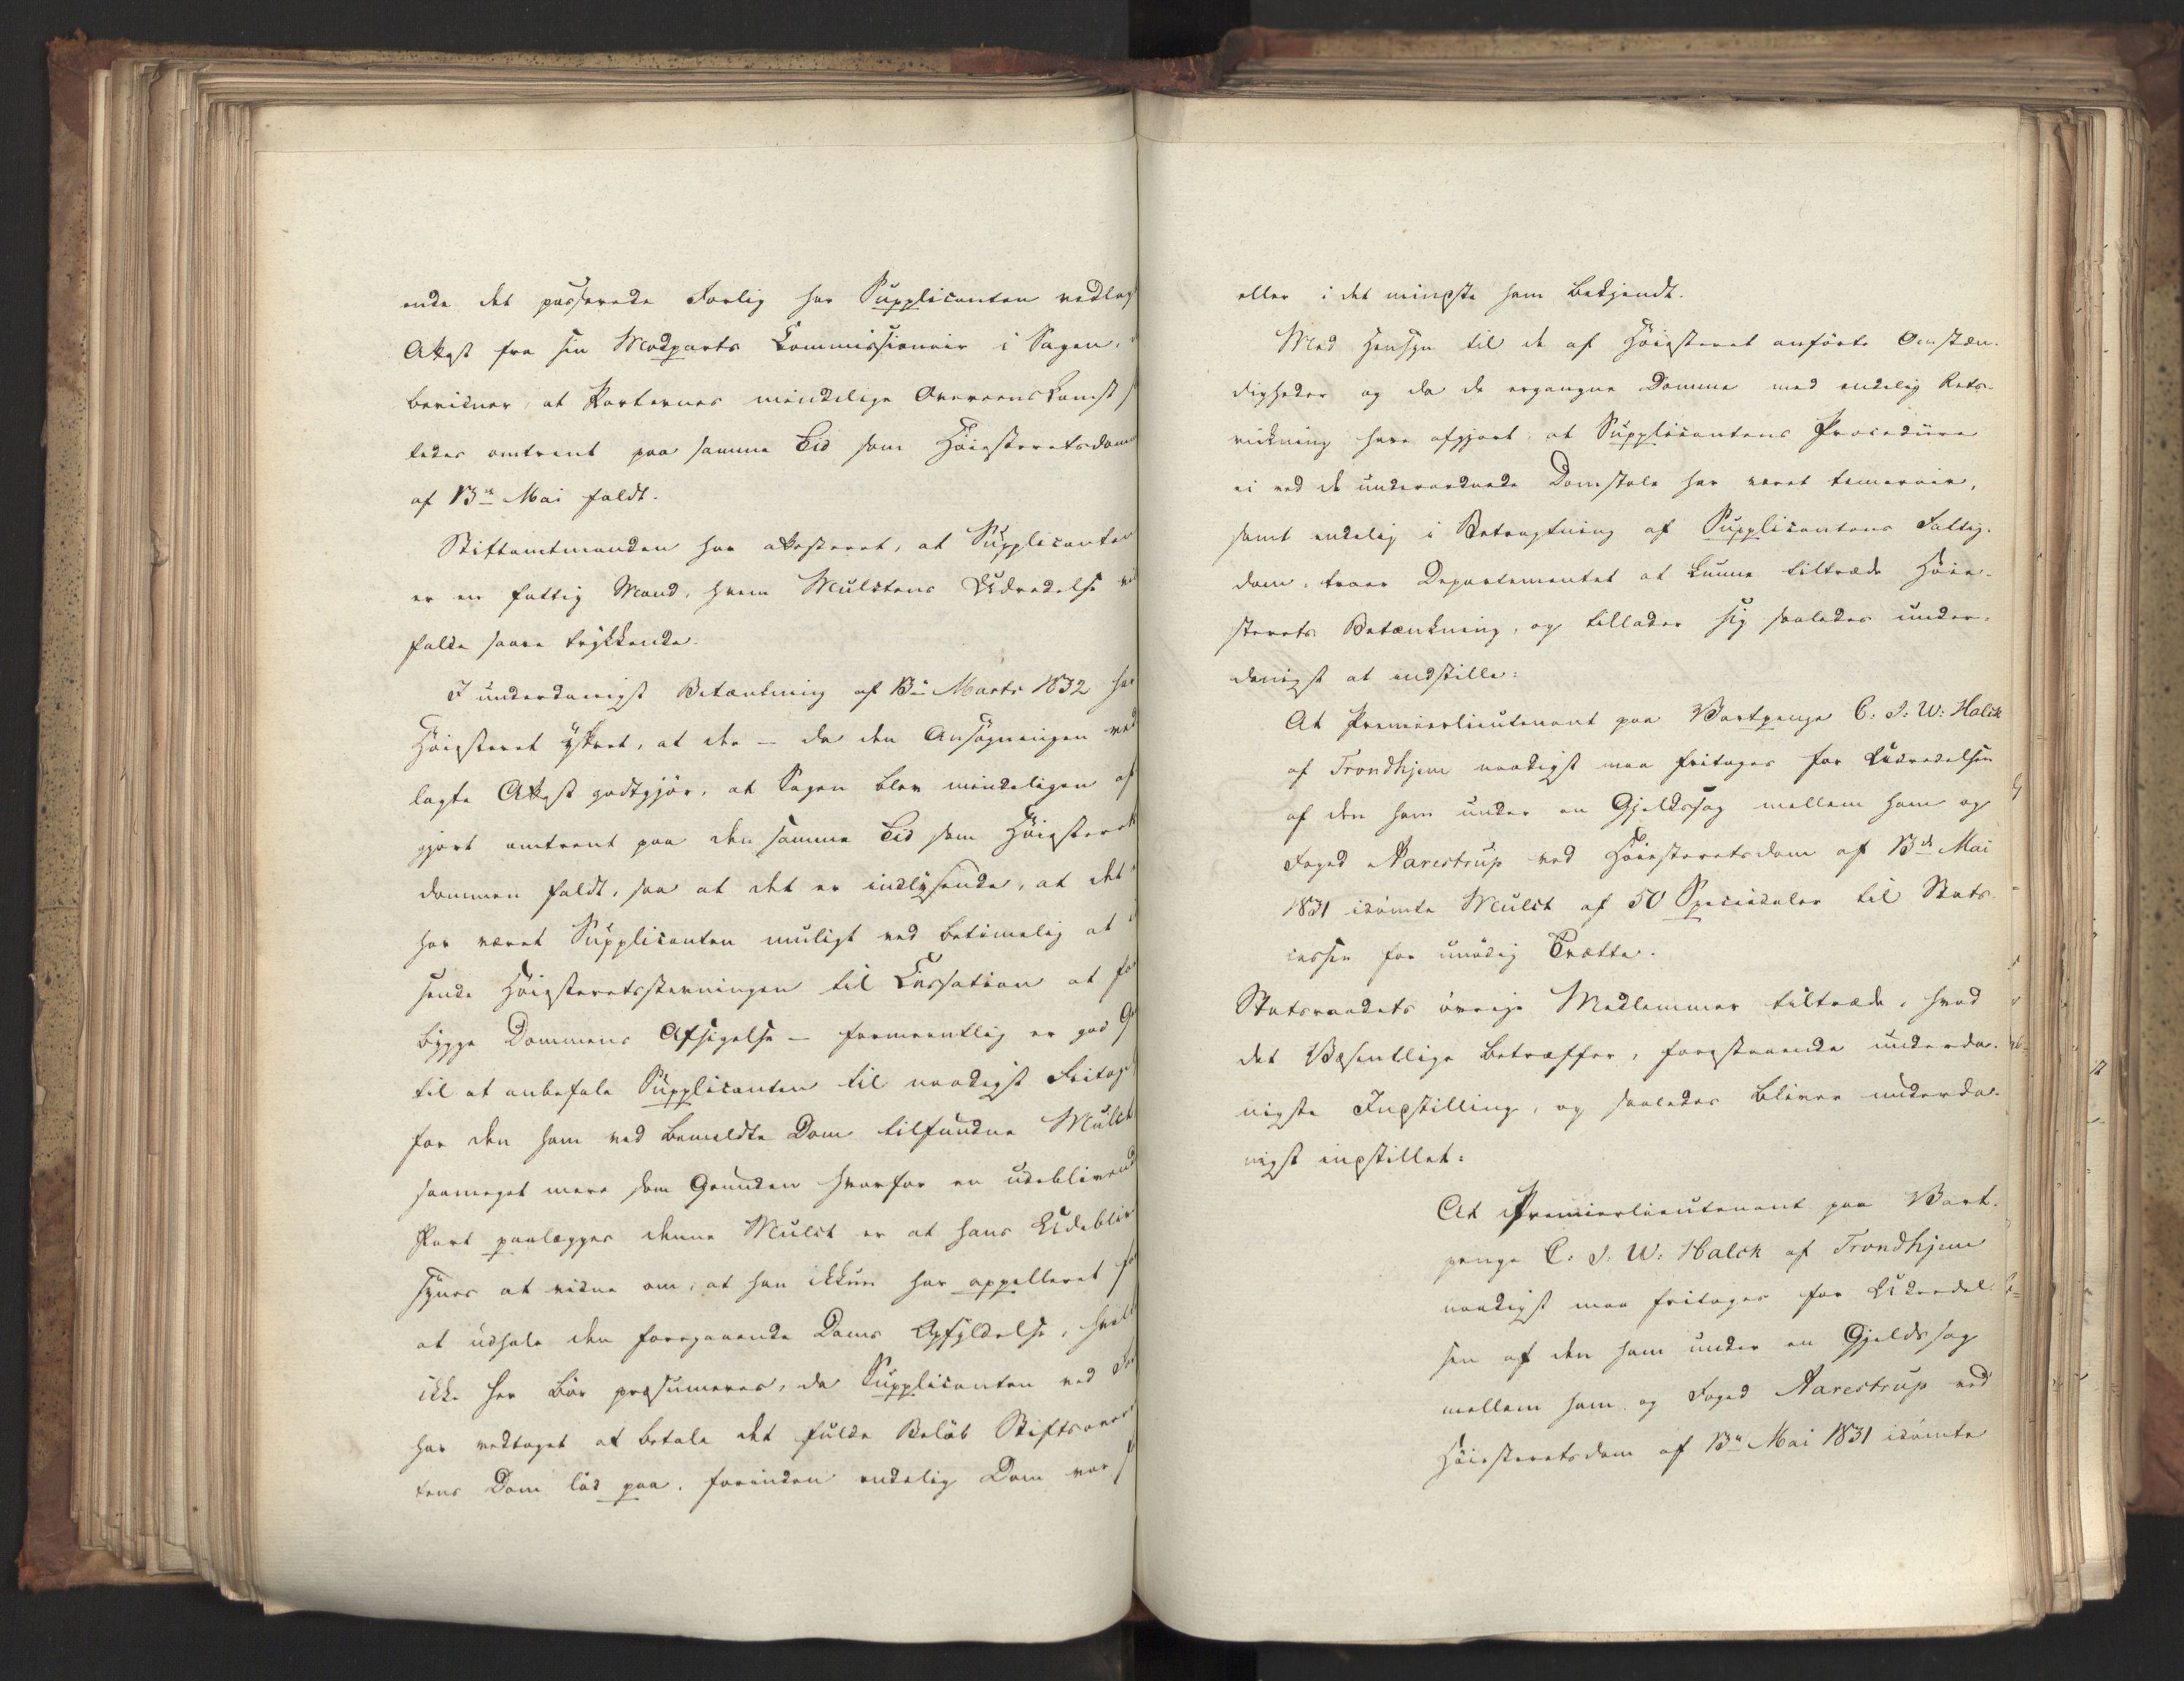 ende det passerede Forlig har Supplicanten vedlagt
Attest fra sin Modparts Commissionair i Sagen,
bevidner, at Parternes mindelige Overeenskomst
lades omtrent paa samme Tid som Høiesteretsdom
af 13de Mai faldt.
Stiftamtmanden har attesteret, at Supplicanten
er en fattig Mand, hvem Mulctens Udredelse vil
falde saare trykkende.
I underdanigst Betænkning af 13de Marts 1832 har
Høiesteret yttret, at der – da den Ansøgningen ved
lagte Attest godtgjør, at Sagen blev mindeligen af
gjort omtrent paa den samme Tid som Høiesterets
dommen faldt, saa at det er indlysende, at det
har været Supplicanten muligt ved betimelig at
sende Høiesteretsstevningen til Cassation at fore
bygge Dommens Afsigelse – formeentlig er god
til at anbefale Supplicanten til naadigst Fritag
for den ham ved bemeldte Dom tilfundne Mulct
saameget mere som Grunden hvorfor en udeblivend
Part paalægges denne Mulct er at hans Udebliv
synes at vidne om, at han ikkun har appelleret for
at udhale den foregaaende Doms Opfyldelse, hvilk
ikke her bør præsumeres, da Supplicanten ved
har vedtaget at betale det fulde Beløb Stiftsover
tens Dom lød paa, forinden endelig Dom var
eller i det mindste ham bekjendt.
Med Hensyn til de af Høiesteret anførte Omstæn-
digheder og da de ergangne Domme med endelig Rets-
virkning have afgjort, at Supplicantens Procedure
ei ved de underordnede Domstole har været temerair,
samt endelig i Betragtning af Supplicantens Fattig-
dom, troer Departementet at kunne tiltræde Høie-
sterets Betænkning, og tillader sig saaledes under-
danigst at indstille:
At Premierlieutenant paa Vartpenge C: J: W: Halck
af Trondhjem naadigst maa fritages for Udredelsen
af den ham under en Gjeldssag mellem ham og
Foged Aarestrup ved Høiesteretsdom af 13de Mai
1831 idømte Mulct af 50 Speciedaler til Stats-
cassen for unødig Trætte.
Statsraadets øvrige Medlemmer tiltræde, hvad
det Væsentlige betræffer, forestaaende underda-
nigste Indstilling, og saaledes bliver underda-
nigst indstillet:
At Premierlieutenant paa Vart-
penge C: J. W: Halck af Trondhjem
naadigst maa fritages for Udredel-
sen af den ham under en Gjeldssag
mellem ham og Foged Aarestrup ved
Høiesteretsdom af 13de Mai 1831 idømte